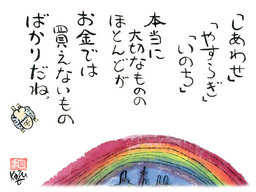 「しあわせ」
「やすらぎ」
「いのち」
本当に
大切なものの
ほとんどが
お金では
買えないもの
ばかりだね。